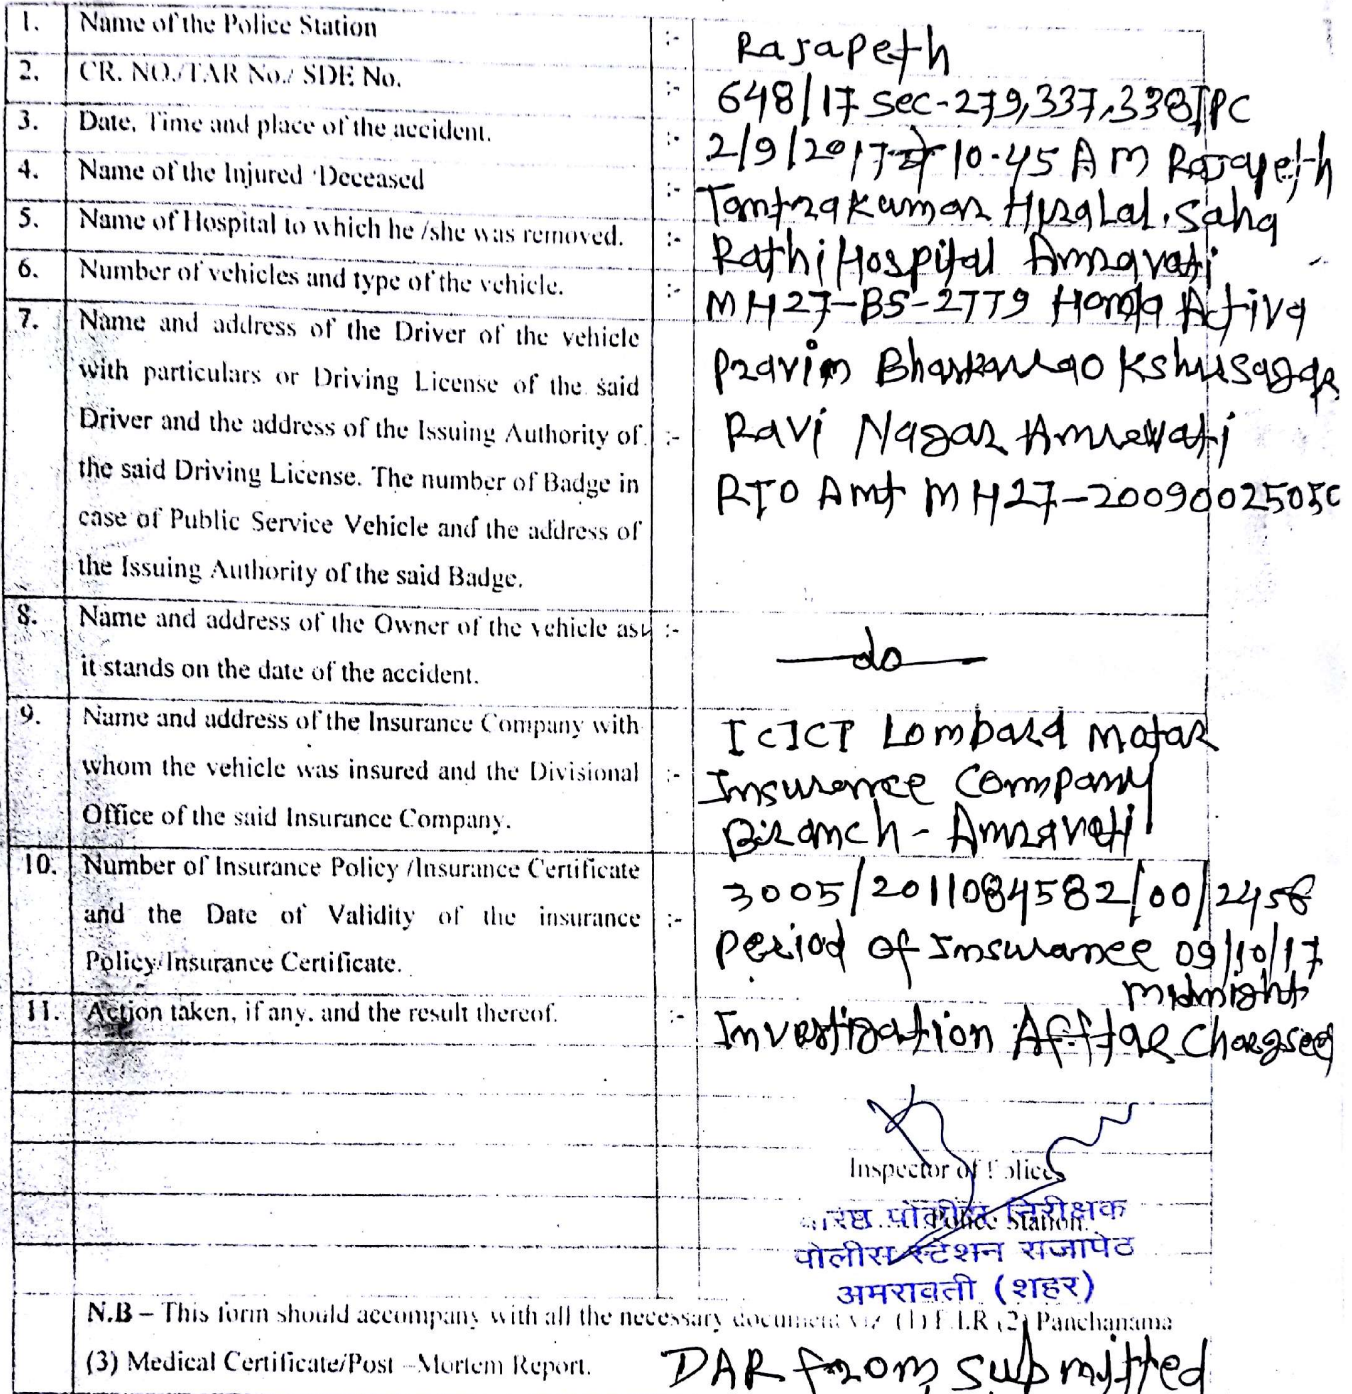 1. Name of the Police Station :- Rajapeth
2. CR. NO./TAR No./ SDE No. :- 648/17 sec-279,337,338 IPC
3. Date, Time and place of the accident. :- 2/9/2017 10.45 AM Rajapeth
4. Name of the Injured Deceased :- Tantrakumar Hiralal. Saha
5. Name of Hospital to which he /she was removed. :- Rathi Hospital Amravati
6. Number of vehicles and type of the vehicle. :- MH27-BS-2779 Honda Activa
7. Name and address of the Driver of the vehicle
with particulars or Driving License of the said
Driver and the address of the Issuing Authority of
the said Driving License. The number of Badge in
case of Public Service Vehicle and the address of
the Issuing Authority of the said Badge.
:- Pravin Bhaskarrao Kshirsagar
Ravi Nagar Amrewati
RTO Amt MH27-2009002505
8. Name and address of the Owner of the vehicle as
it stands on the date of the accident.
:- do
9. Name and address of the Insurance Company with
whom the vehicle was insured and the Divisional
Office of the said Insurance Company.
:- ICICI Lombard Motar
Insurance Company
Branch - Amravati
10. Number of Insurance Policy /Insurance Certificate
and the Date of Validity of the insurance
Policy/Insurance Certificate.
:- 3005/2011084582/00/2458
Period of Insurance 09/10/17
Midnight
11. Action taken, if any, and the result thereof. :- Investigation Afftar
Inspector of Police
Police Station
वरिष्ठ पोलीस निरीक्षक
पोलीस स्टेशन राजापेठ
अमरावती (शहर)
N.B – This form should accompany with all the necessary document viz (1) F.I.R (2) Panchanama
(3) Medical Certificate/Post –Mortem Report.
DAR from submitted